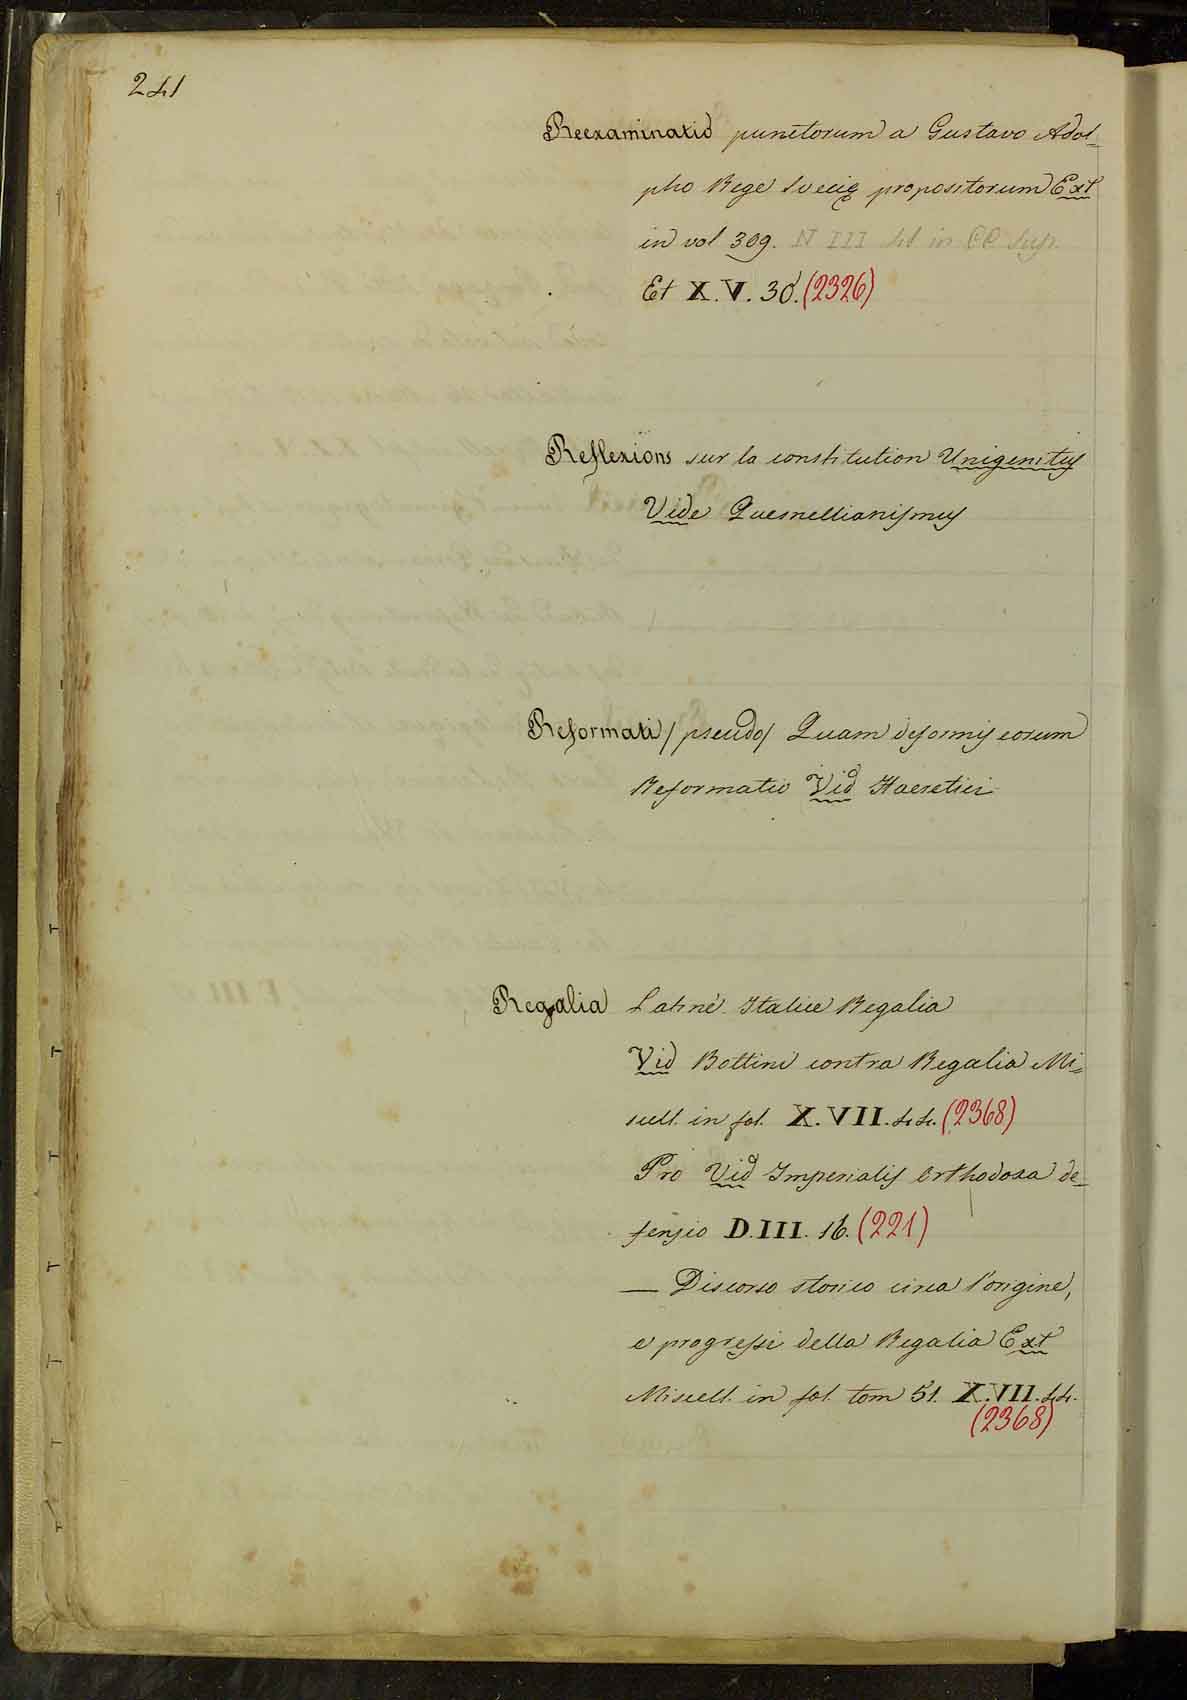 241
Reexaminatio punctorum a Gustavo Adol=
pho Rege Svecię propositorum Ext
in vol 309. N III 41 in CC Sup.
Et X.V. 30. (2326)
Reflexions sur la constitution Unigenitus
Vide Quesnellianismus
Reformati / pseudo / Quam deformis eorum
Reformatio Vid Haeretici
Regalia Latinè Italice Regalia
Vid Bottini contra Regalia Mi=
scell. in fol. X.VII. 44. (2368)
Pro Vid Imperialis Orthodoxa de=
fensio D.III. 16. (221)
— Discorso storico circa l'origine,
e progressi della Regalia Ext
Miscell. in fol. tom 51. X.VII. 44.
(2368)